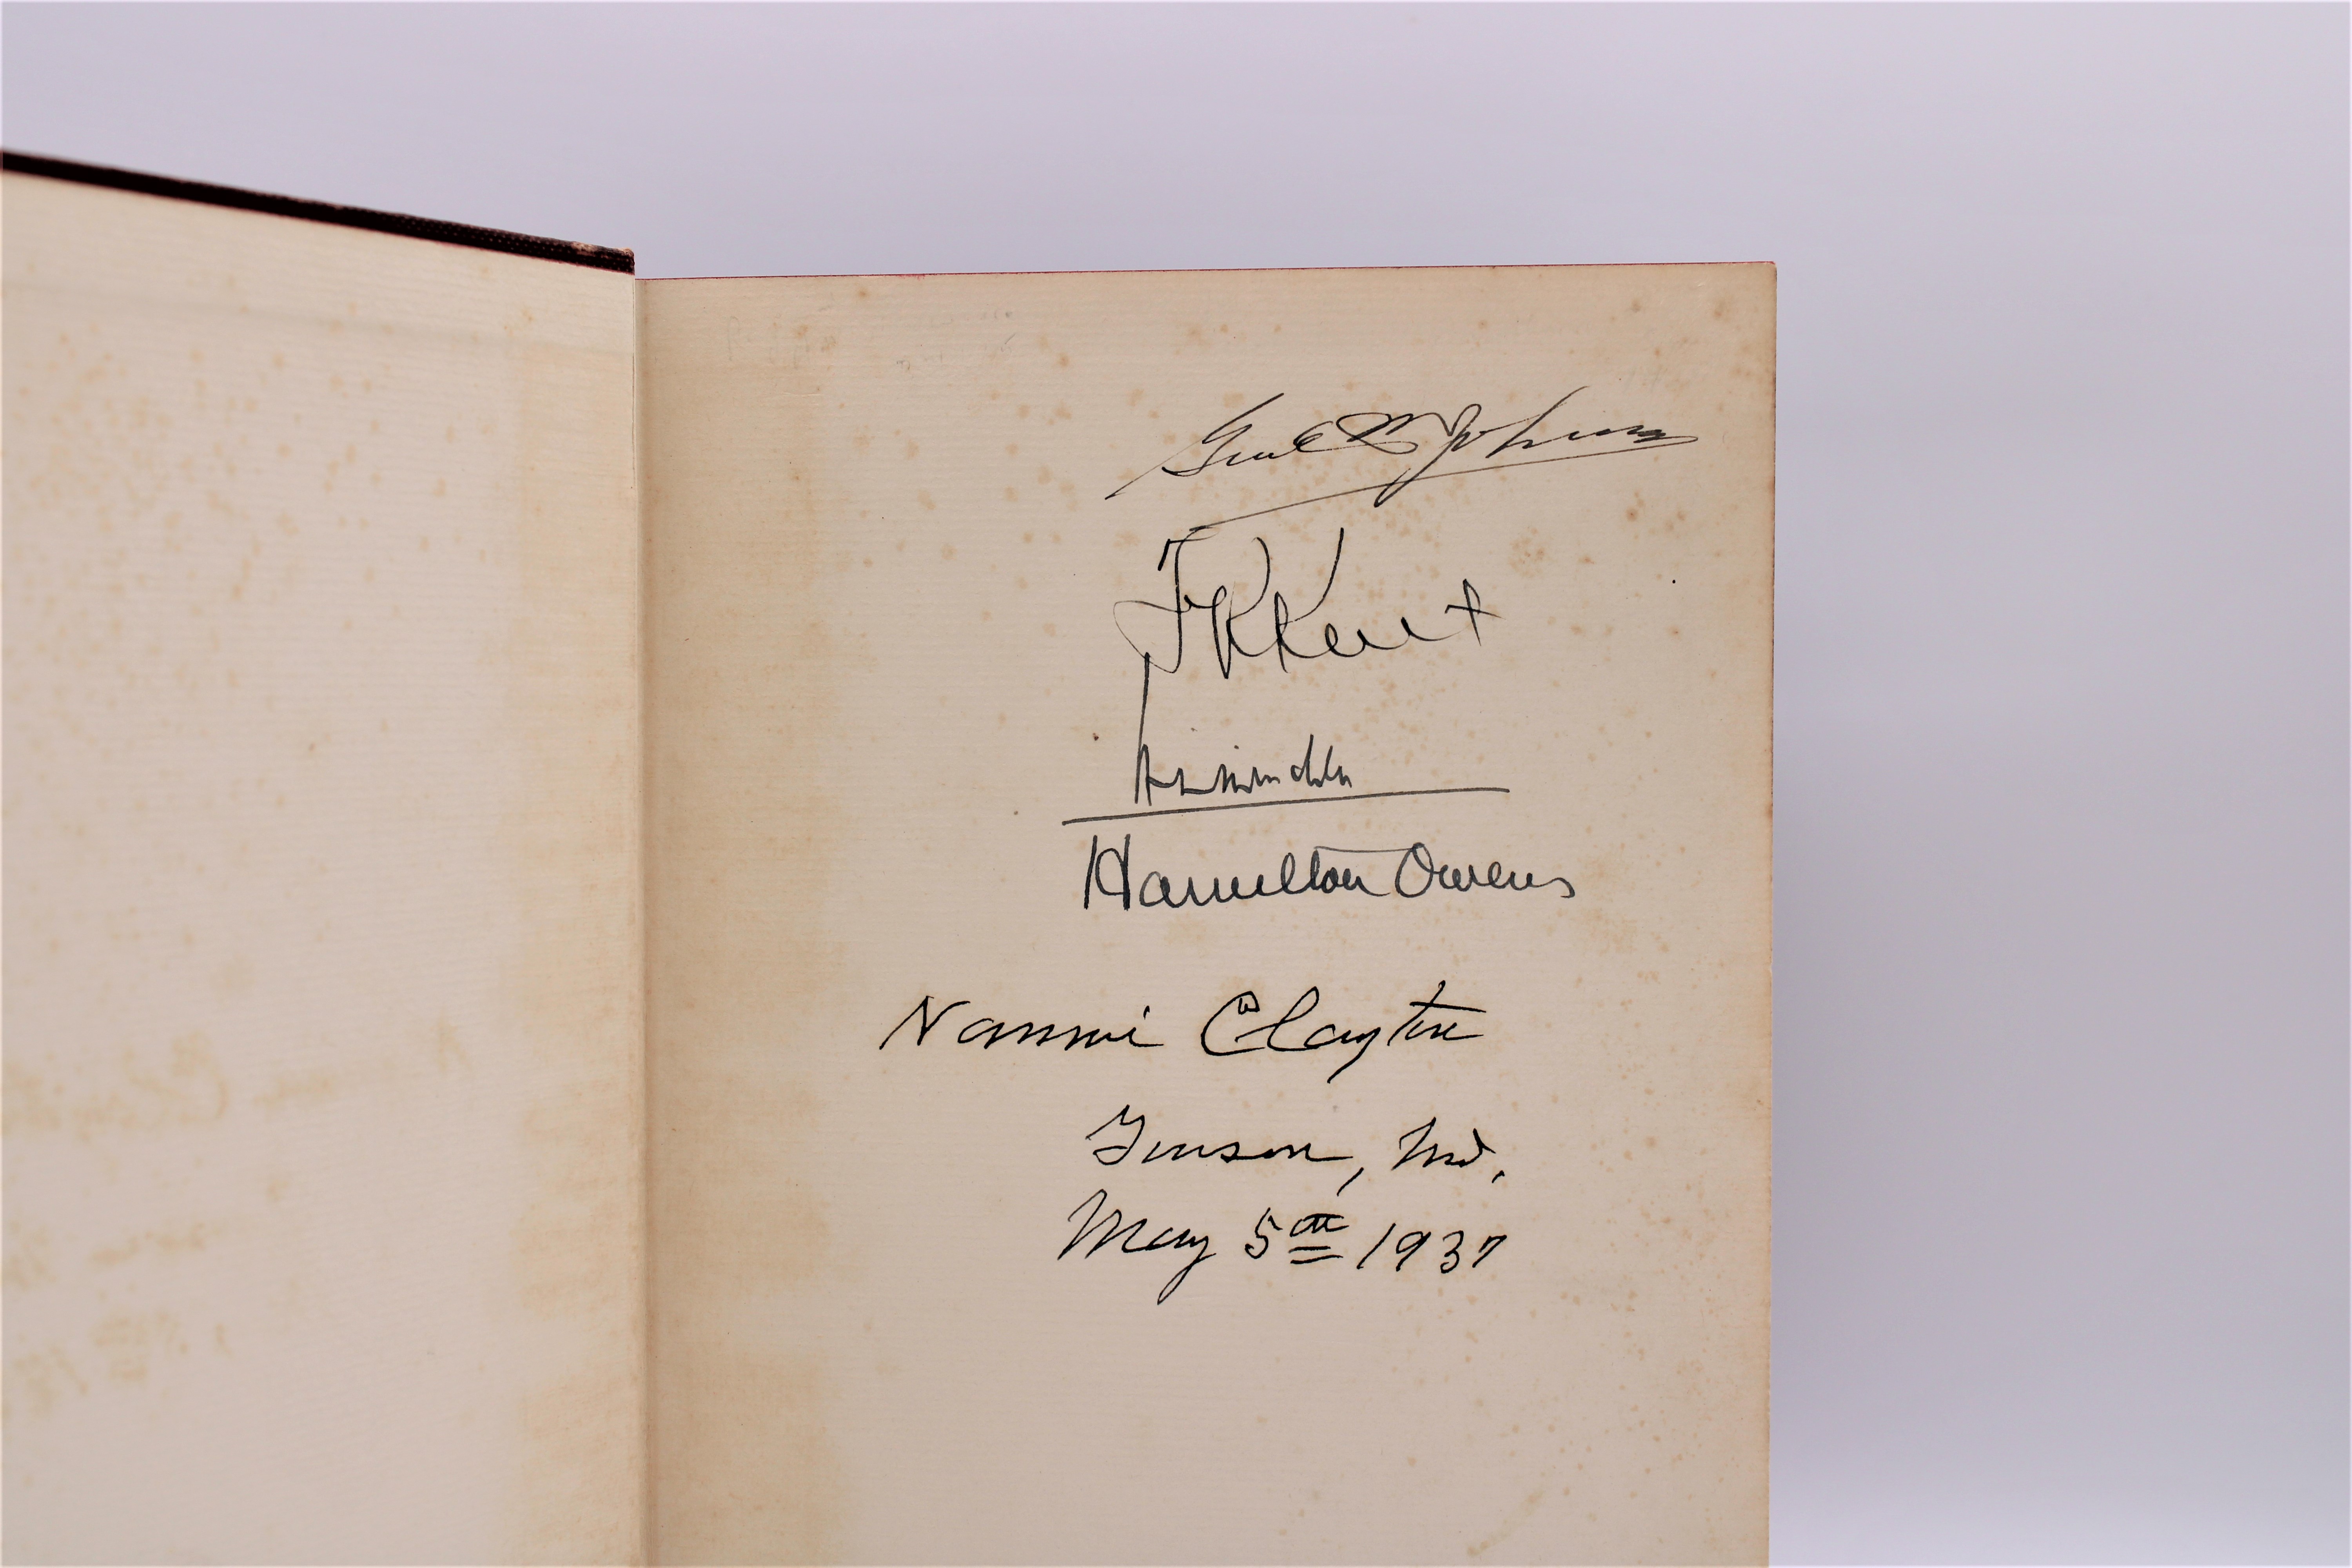 Gerald W Johnson
F R Kent
H L Mencken
Hamilton Owens
Nannie Clayton
Towson, Md.
May 5th 1937